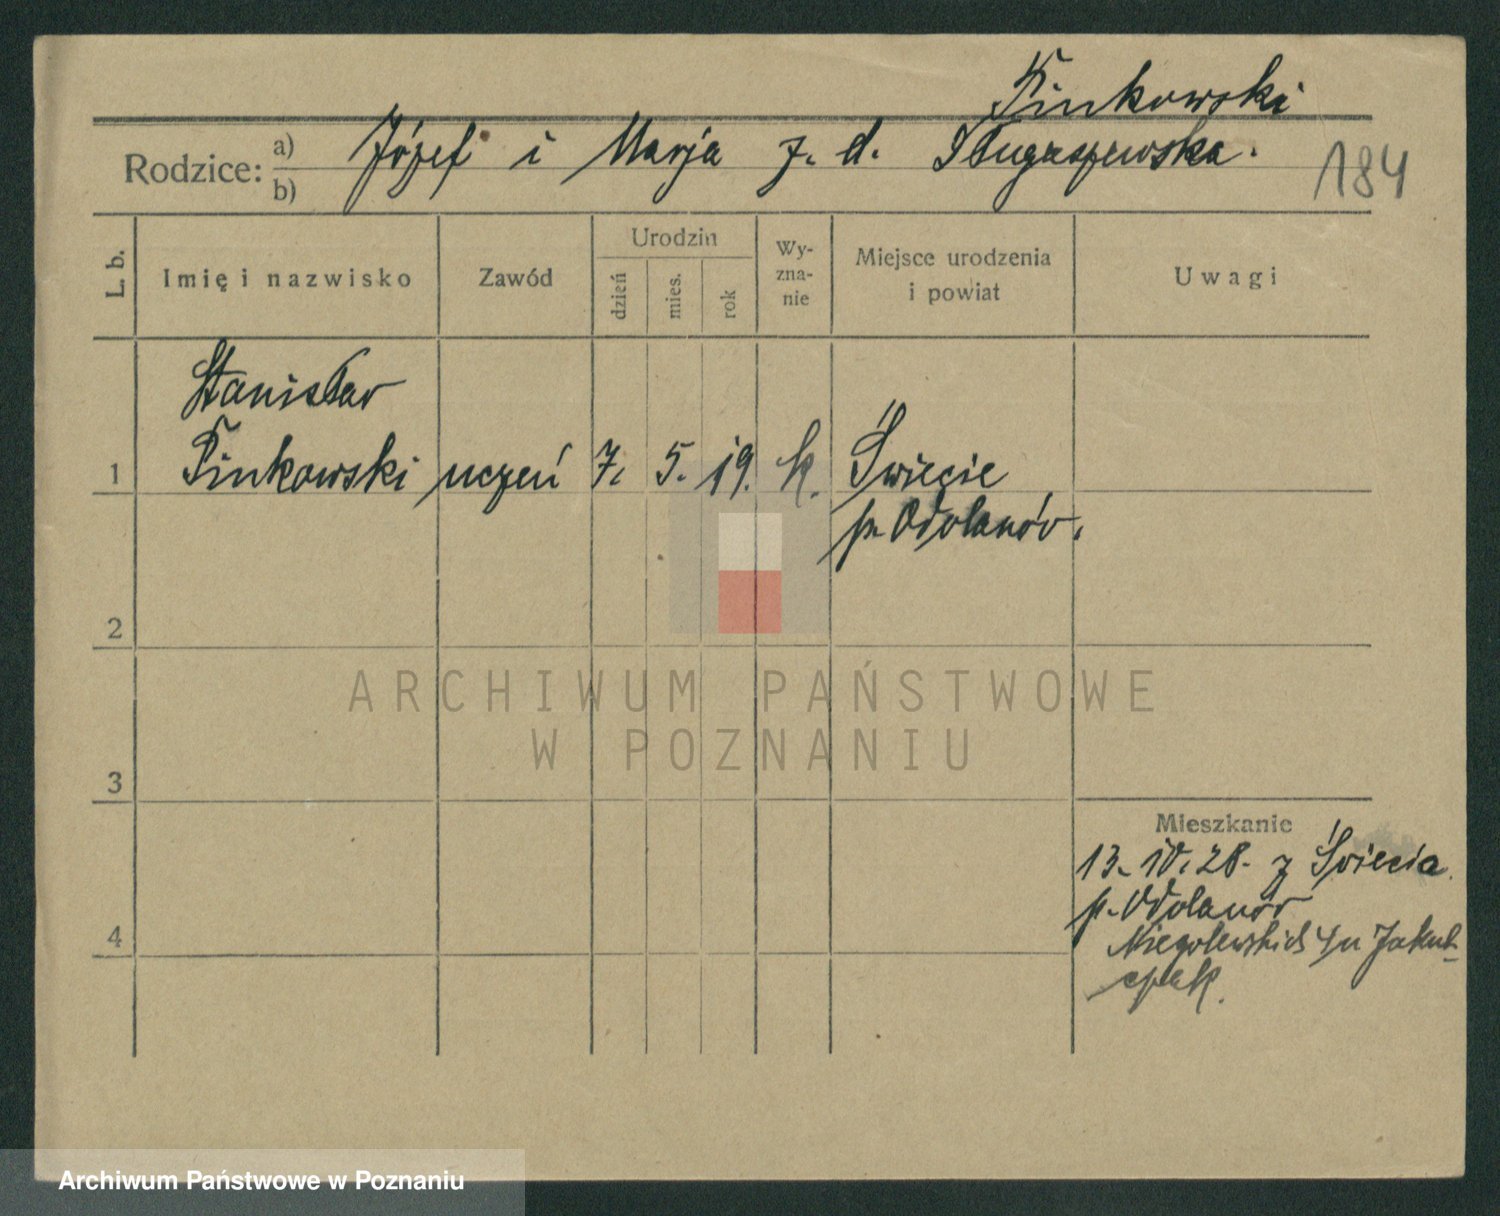 Pinkowski
Rodzice: a) b) Józef i Marja z. d. Długaszewska.
184
L. b.
Imię i nazwisko
Zawód
Urodzin
dzień
mies.
rok
Wy-
zna-
nie
Miejsce urodzenia
i powiat
Uwagi
Stanisław
1 Pinkowski uczeń 7. 5. 19. k. Świecie
p. Odolanów.
2
ARCHIWUM PAŃSTWOWE
W POZNANIU
3
Mieszkanie
13. IV. 28. z Świecia
p. Odolanów
4 Niegolewskich 4/u Jakub-
czak.
Archiwum Państwowe w Poznaniu